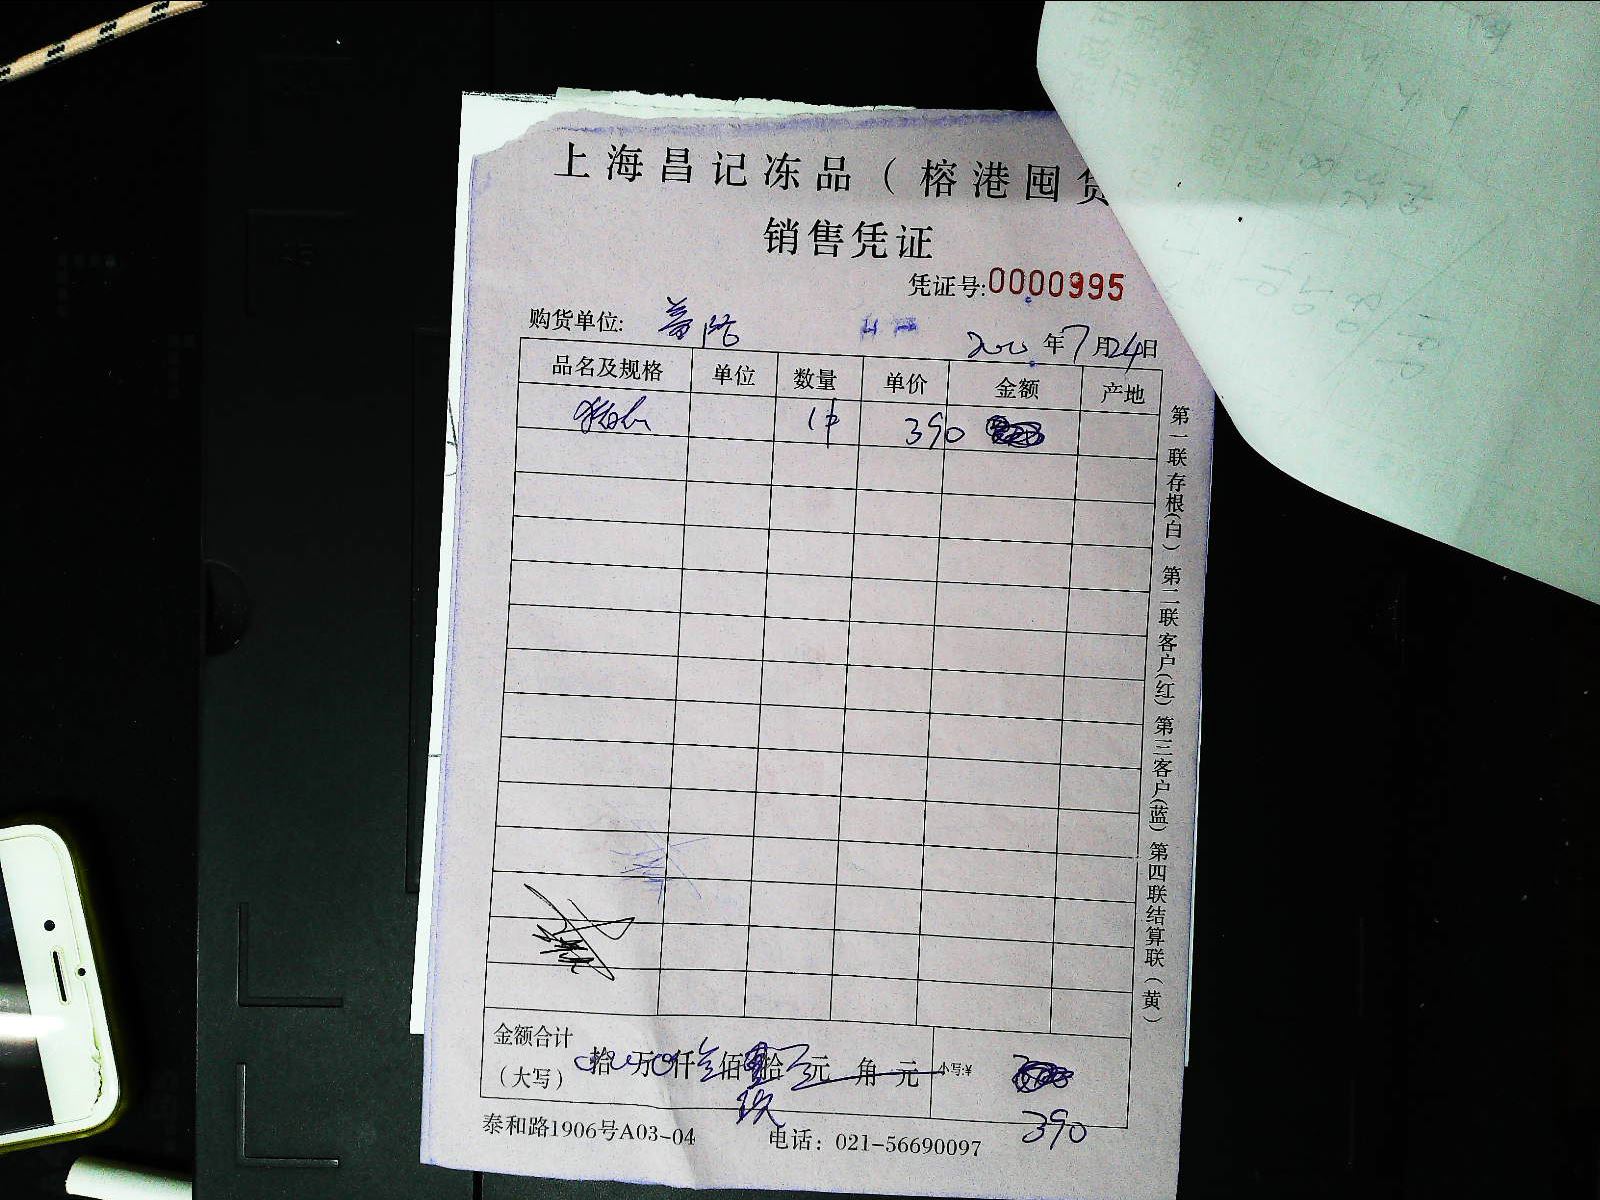 上海昌记冻品（榕港囤货
销售凭证
凭证号:0000995
购货单位: 普陀
年7月24日
品名及规格 单位 数量 单价 金额 产地
1件 390
第一联存根(白) 第二联客户(红) 第三客户(蓝) 第四联结算联(黄)
金额合计
(大写) 拾 万 仟 叁佰 拾 元 角 元 小写:¥
玖
390
泰和路1906号A03-04 电话：021-56690097